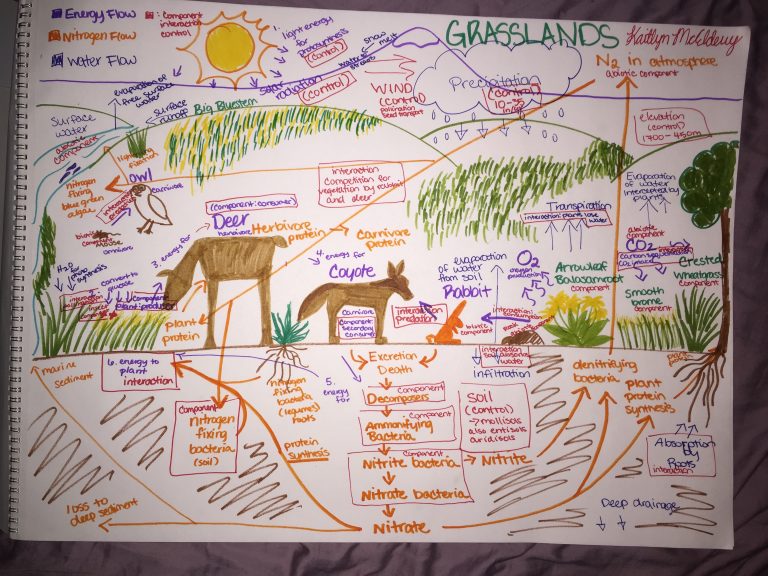 Energy Flow
Nitrogen Flow
Water Flow
: Component
interaction
control
1. light energy
for
photosynthesis
(control)
snow
melt
solar
radiation
(control)
GRASSLANDS
Kaitlyn McElderry
N₂ in atmosphere
abiotic component
WIND
(control)
pollination
seed transport
Precipitation
(control)
10-35
in/yr
elevation
(control)
1700-450m
evaporation of
free surface
water
Surface
water
abiotic
component
surface
runoff
Big Bluestem
lightning
fixation
nitrogen
fixing
blue green
algae
owl
carnivore
mouse
omnivore
interaction
competition for
vegetation by rabbit
and deer
(component: consumer)
Deer
herbivore
Herbivore
protein
Carnivore
protein
3. energy for
4. energy for
Coyote
Carnivore
Component:
secondary
consumer
H₂O
for
photosynthesis
convert to
glucose
component
plant: producer
plant
protein
interaction
predation
Rabbit
evaporation
of water
from soil
O₂
oxygen
production
biotic
component
Transpiration
interaction: plants lose
water
Evaporation
of water
intercepted by
plants
abiotic
component
CO₂
Arrowleaf
Balsamroot
component
Smooth
brome
component
Crested
Wheatgrass
component
interaction
soil
water
Infiltration
marine
sediment
6. energy to
plant
interaction
Component
Nitrogen
fixing
bacteria
(soil)
nitrogen
fixing
bacteria
(legumes)
roots
5.
energy
for
Excretion
Death
Component
Decomposers
Component
Ammonifying
Bacteria
Component
Nitrite bacteria
Nitrite
Nitrate bacteria
Nitrate
protein
synthesis
Soil
(control)
→ mollisols
also entisols
aridisols
denitrifying
bacteria
plant
protein
synthesis
Absorption
by
Roots
interaction
Deep drainage
loss to
deep sediment